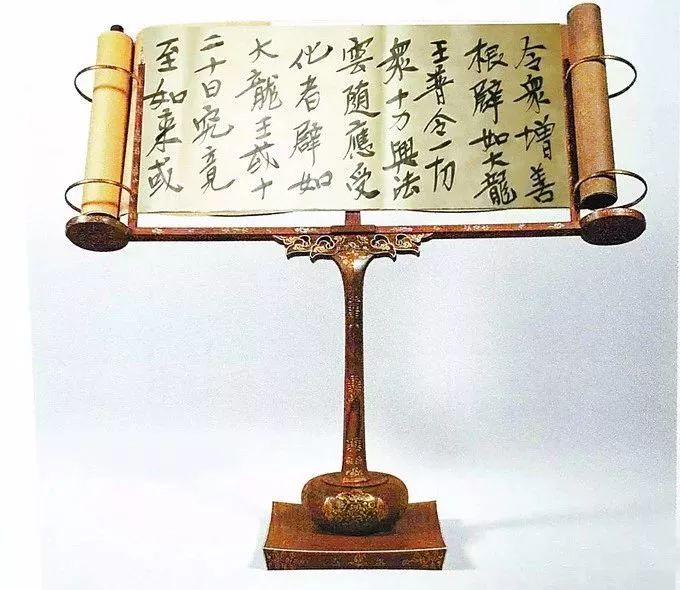 令衆增善
根辟如大龍
王普令一切
衆十力興法
雲随應受
化者辟如
大龍王或十
二十日究竟
至如来或